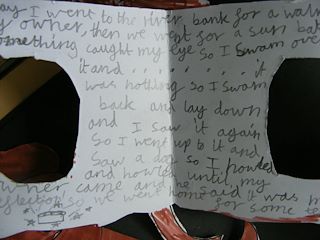 ay I went to the river bank for a walk
y owner, then we went for a sun bat
omething caught my eye so I swam over
it and . . . . . . . . . it
was nothing so I swam
back and lay down
and I saw it again
So I went up to it and
saw a dog so I prowled
and howled until my
owner came and he said it was m
eflection so we went home
for some t